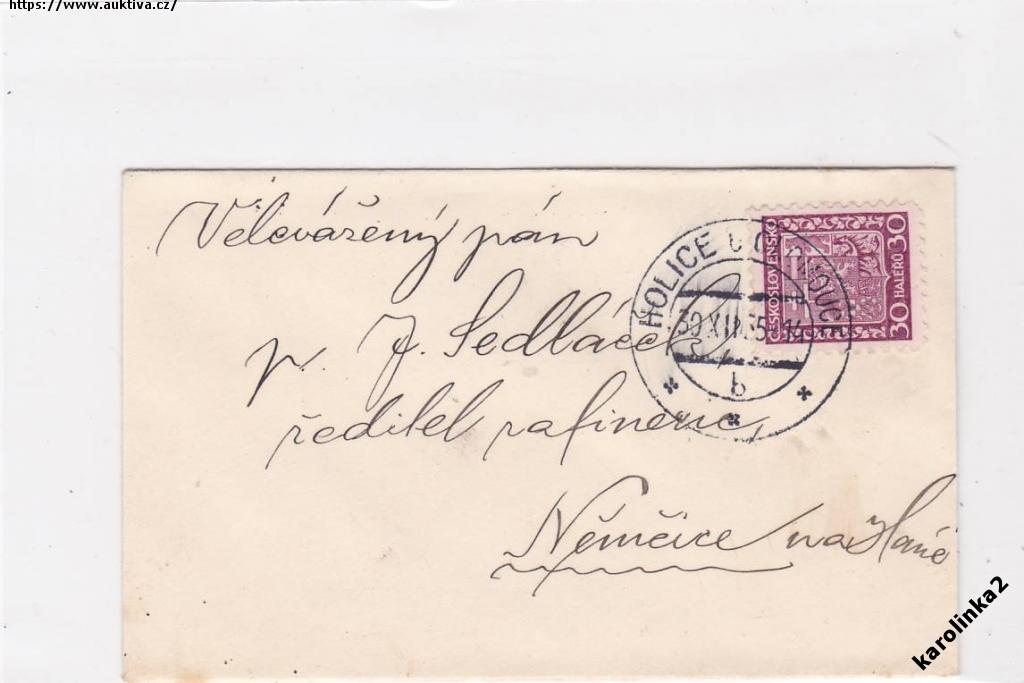 https://www.auktiva.cz/
Velevážený pán
p. J. Sedláček
ředitel rafinerie,
Němčice na Hané
HOLICE U OLOMOUCE
30 XII 35 - 14
b
ČESKOSLOVENSKO
30 HALÉŘŮ 30
karolinka2